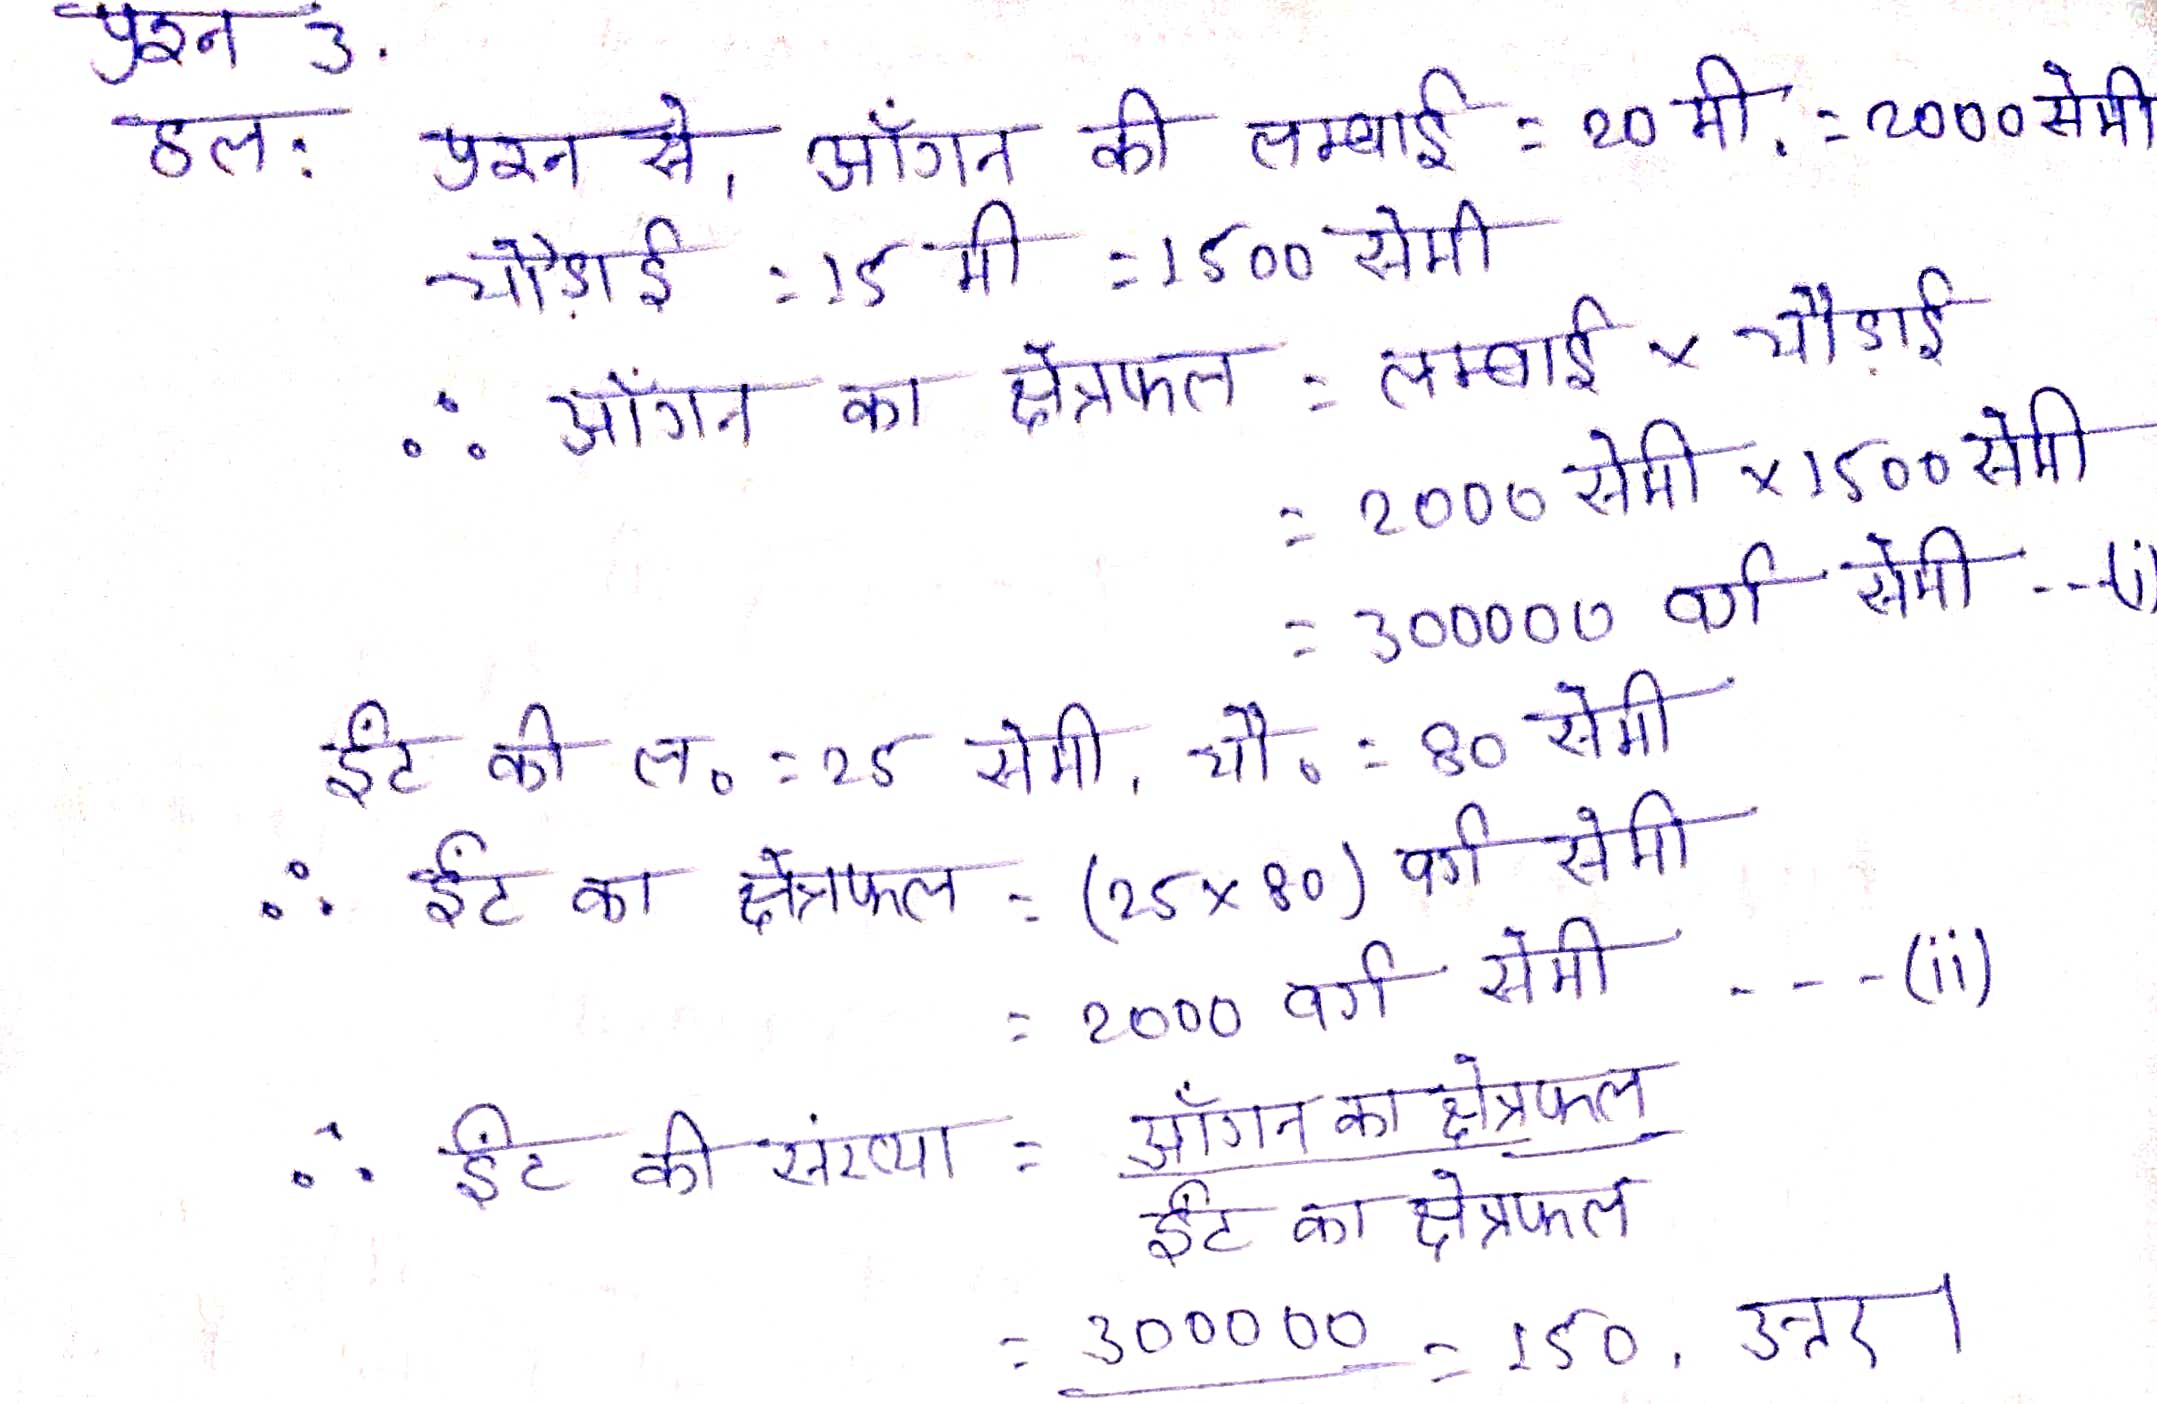 प्रश्न 3.
हल: प्रश्न से, आँगन की लम्बाई = 20 मी. = 2000 सेमी
चौड़ाई = 15 मी = 1500 सेमी
∴ आँगन का क्षेत्रफल = लम्बाई × चौड़ाई
= 2000 सेमी × 1500 सेमी
= 300000 वर्ग सेमी --(i)
ईंट की ल॰ = 25 सेमी, चौ॰ = 80 सेमी
∴ ईंट का क्षेत्रफल = (25 × 80) वर्ग सेमी
= 2000 वर्ग सेमी ---(ii)
∴ ईंट की संख्या = आँगन का क्षेत्रफल
ईंट का क्षेत्रफल
= 300000 = 150. उत्तर।